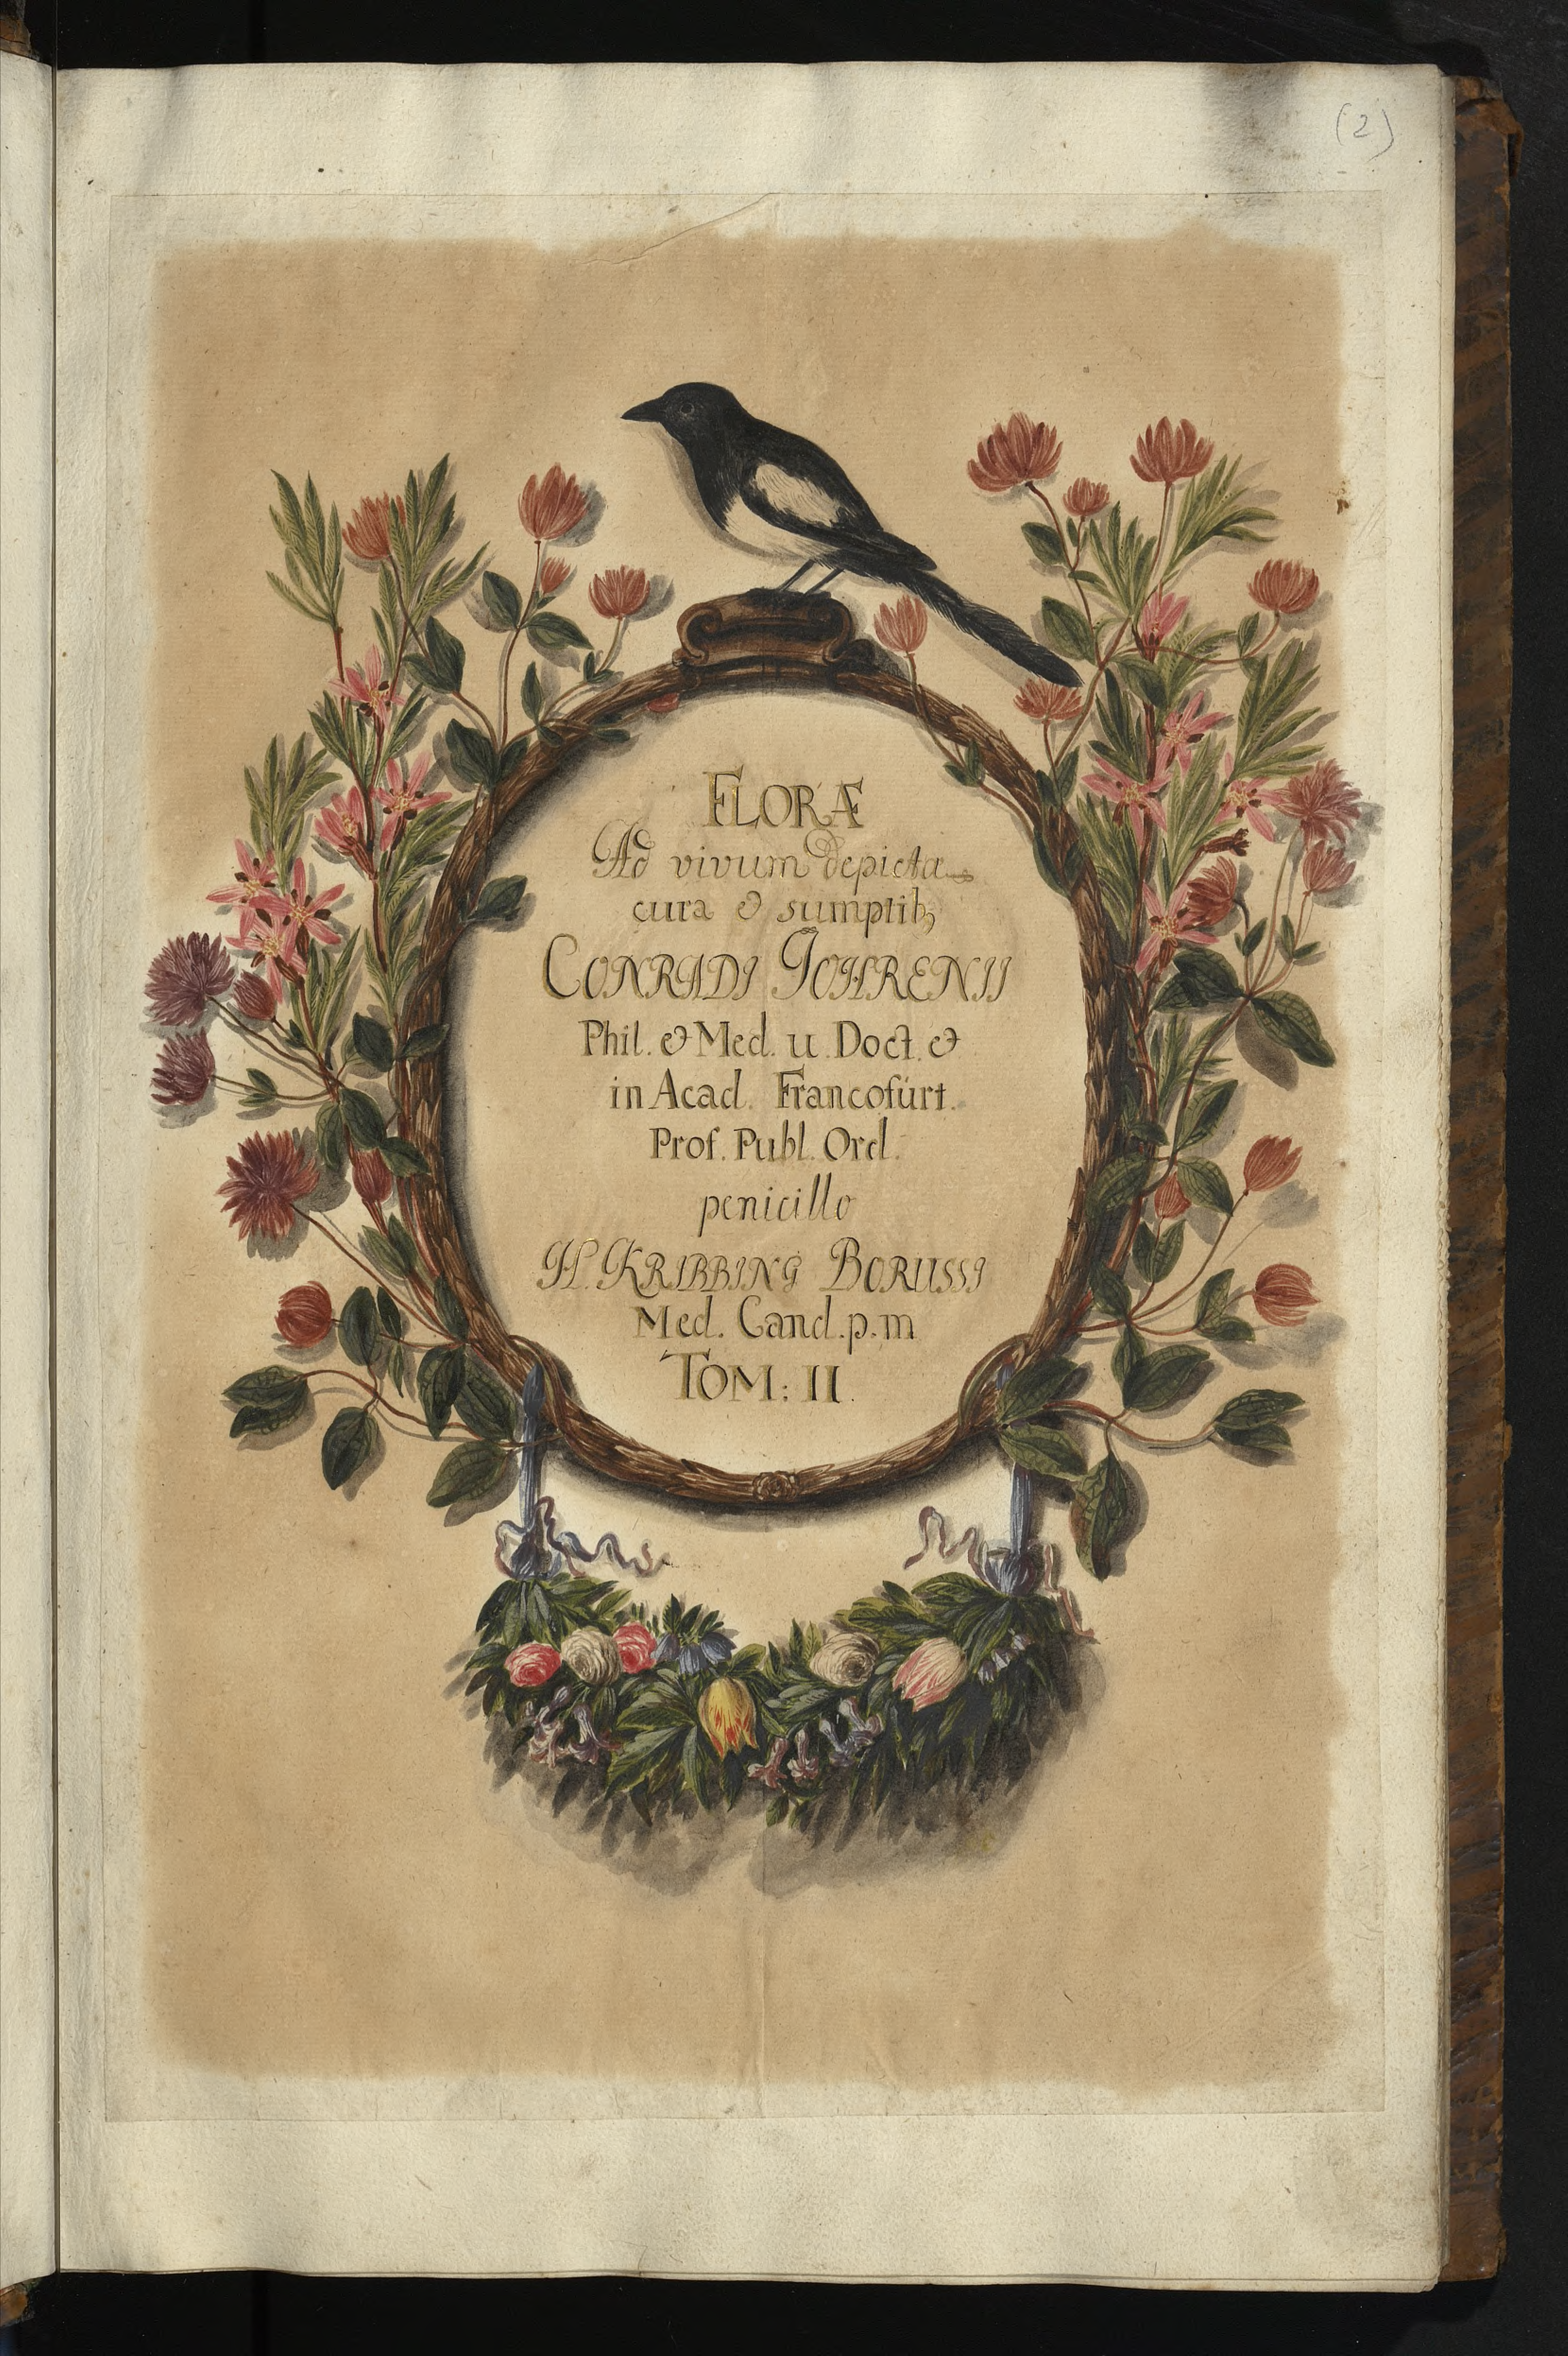 (2)
FLORÆ
Ad vivum depicta
cura & sumptib₉
CONRADI JOHRENII
Phil. & Med. u. Doct. &
in Acad. Francofurt.
Prof. Publ. Ord.
penicillo
H. KRIBBING BORUSSI
Med. Cand. p. m
TOM: II.